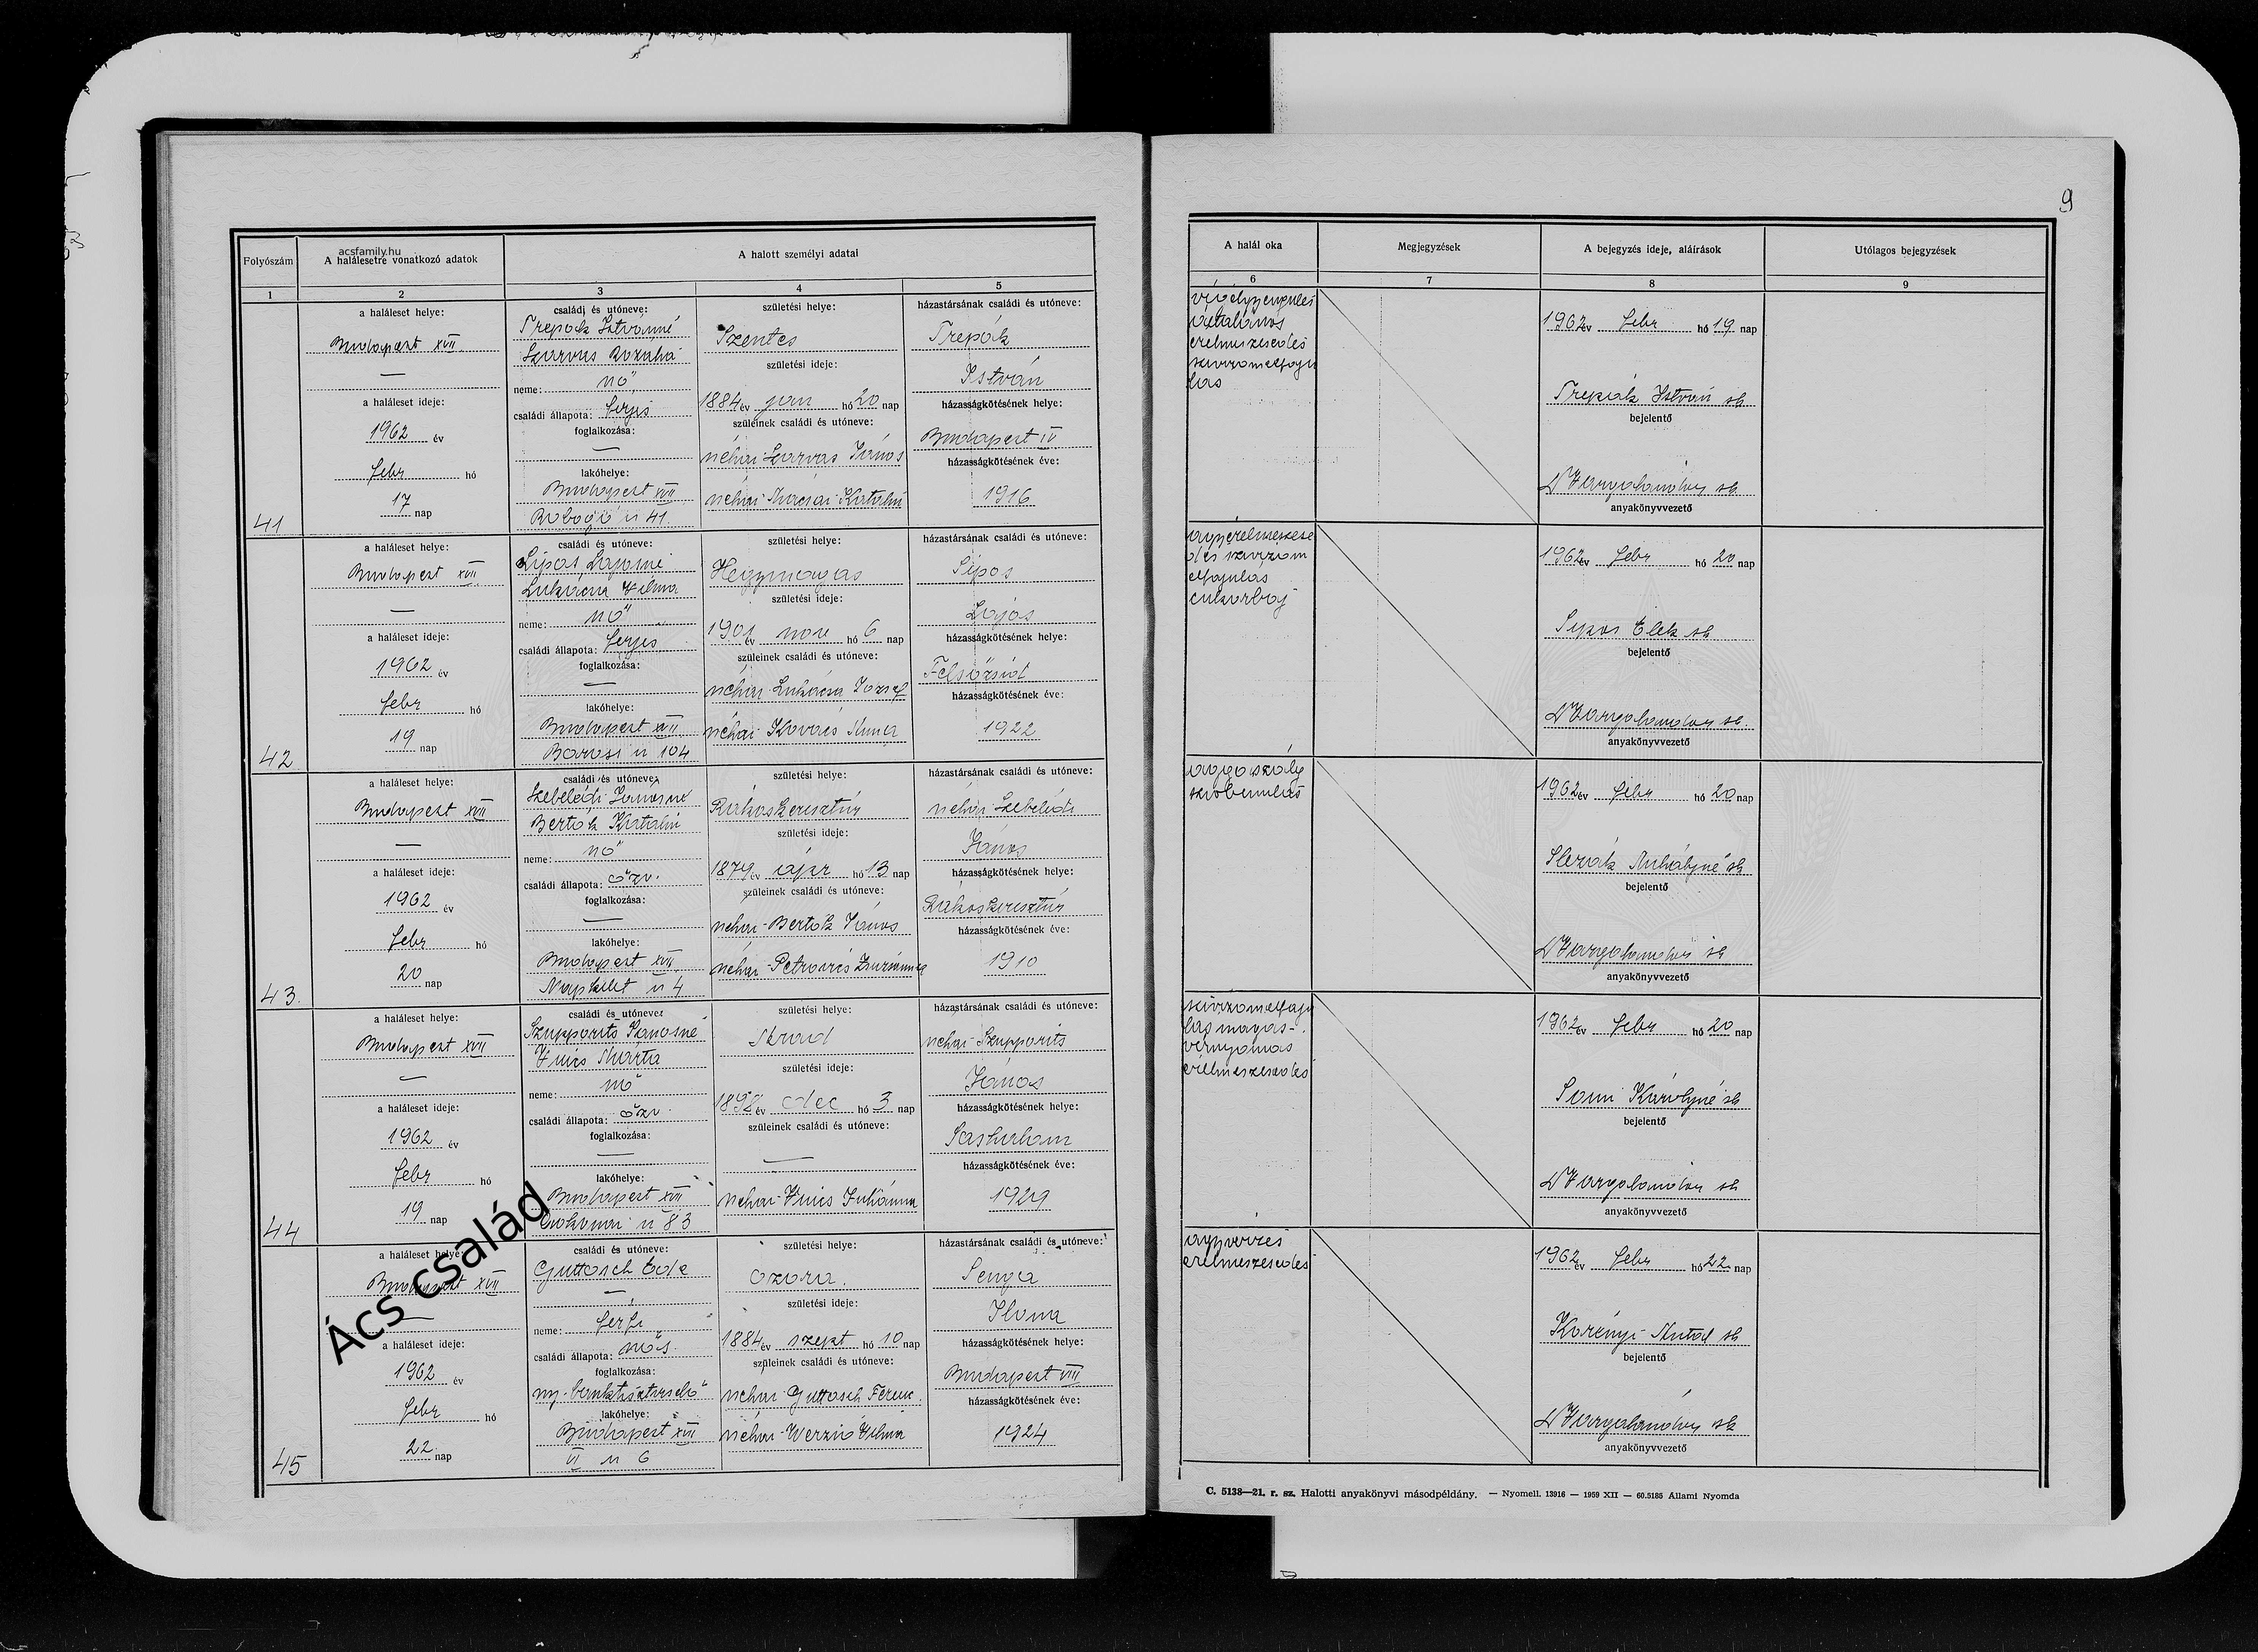 9
acsfamily.hu
Folyószám
A halálesetre vonatkozó adatok
A halott személyi adatai
A halál oka
Megjegyzések
A bejegyzés ideje, aláírások
Utólagos bejegyzések
1 2 3 4 5 6 7 8 9
41
a haláleset helye:
Budapest XVII
—
a haláleset ideje:
1962 év
febr hó
17 nap
családi és utóneve:
Trepák Istvánné
Szarvas Rozália
neme: nő
családi állapota: férjes
foglalkozása:
—
lakóhelye:
Budapest XVII
u 41.
születési helye:
Szentes
születési ideje:
1884 év jan hó 20 nap
szüleinek családi és utóneve:
néhai Szarvas János
néhai Katalin
házastársának családi és utóneve:
Trepák
István
házasságkötésének helye:
Budapest IV
házasságkötésének éve:
1916
végelgyengülés
általános
érelmeszesedés
szívizomelfaju
lás
1962 év febr hó 19 nap
Trepák István sk
bejelentő
sk
anyakönyvvezető
42
a haláleset helye:
Budapest XVII
—
a haláleset ideje:
1962 év
febr hó
19 nap
családi és utóneve:
Sipos Lajosné
Lukácsa Vilma
neme: nő
családi állapota: férjes
foglalkozása:
—
lakóhelye:
Budapest XVII
u 104
születési helye:
Hegymagas
születési ideje:
1901 év nov hó 6 nap
szüleinek családi és utóneve:
néhai Lukácsa József
néhai Kovács Anna
házastársának családi és utóneve:
Sipos
Lajos
házasságkötésének helye:
Felsőzsid
házasságkötésének éve:
1922
agyérelmeszese
dés szívizom
elfajulás
cukorbaj
1962 év febr hó 20 nap
Sipos Elek sk
bejelentő
sk.
anyakönyvvezető
43.
a haláleset helye:
Budapest XVII
—
a haláleset ideje:
1962 év
febr hó
20 nap
családi és utóneve:
Szebelédi Jánosné
Bertok Katalin
neme: nő
családi állapota: özv.
foglalkozása:
—
lakóhelye:
Budapest XVII
Napkelet u 4
születési helye:
Rákoskeresztúr
születési ideje:
1879 év ápr hó 13 nap
szüleinek családi és utóneve:
néhai Bertok János
néhai Petrovics Zsuzsanna
házastársának családi és utóneve:
néhai Szebelédi
János
házasságkötésének helye:
Rákoskeresztúr
házasságkötésének éve:
1910
aggaszály
szívbénulás
1962 év febr hó 20 nap
Slezák Mihályné sk
bejelentő
sk
anyakönyvvezető
44
a haláleset helye:
Budapest XVII
—
a haláleset ideje:
1962 év
febr hó
19 nap
családi és utóneve:
Szupporits Jánosné
Vincs Mária
neme: nő
családi állapota: özv.
foglalkozása:
—
lakóhelye:
Budapest XVII
u 83
születési helye:
születési ideje:
1898 év dec hó 3 nap
szüleinek családi és utóneve:
—
néhai Vincs Julianna
házastársának családi és utóneve:
néhai Szupporits
János
házasságkötésének helye:
Sashalom
házasságkötésének éve:
1929
szívizomelfaju
lás magas-
vérnyomás
érelmeszesedés
1962 év febr hó 20 nap
Károlyné sk
bejelentő
sk
anyakönyvvezető
45
a haláleset helye:
Budapest XVII
—
a haláleset ideje:
1962 év
febr hó
22 nap
családi és utóneve:
Guttosch Ede
—
neme: férfi
családi állapota: nős.
foglalkozása:
ny. banktisztviselő
lakóhelye:
Budapest XVII
VI u 6
születési helye:
Ozora.
születési ideje:
1884 év szept hó 10 nap
szüleinek családi és utóneve:
néhai Guttosch Ferenc.
néhai Vilma
házastársának családi és utóneve:
Senga
Ilona
házasságkötésének helye:
Budapest VIII
házasságkötésének éve:
1924
agyvérzés
érelmeszesedés
1962 év febr hó 22. nap
Korényi Antal sk
bejelentő
sk
anyakönyvvezető
Ács család
C. 5138—21. r. sz. Halotti anyakönyvi másodpéldány. — Nyomell. 13916 — 1959 XII — 60.5185 Állami Nyomda